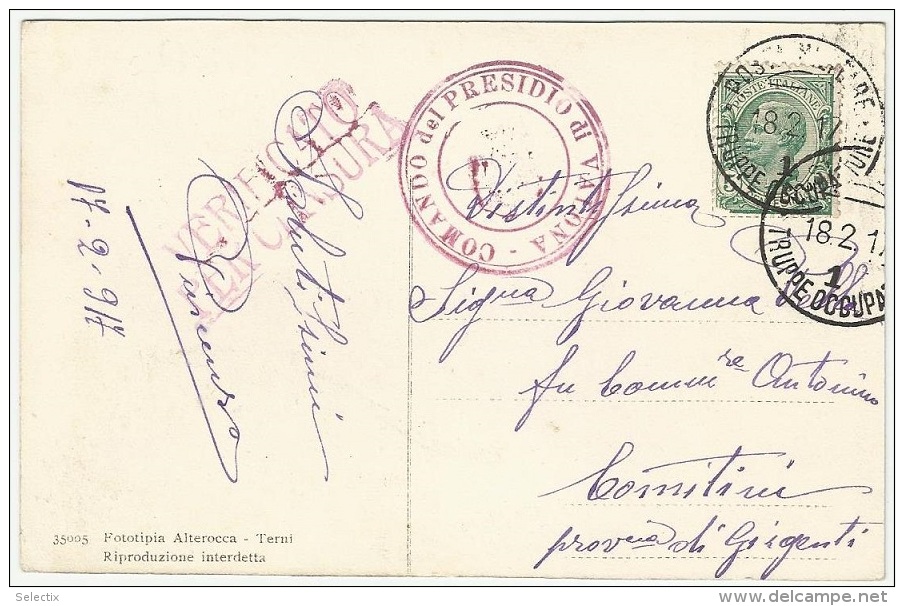 17-2-917
Salutissimi
Vincenzo
VERIFICATO
PER CENSURA
COMANDO del PRESIDIO di VALONA
POSTE ITALIANE
18.2.17
1
18.2.17
1
TRUPPE OCCUPA
Distintissima
Signa Giovanna
fu Comm re Antonino
Comitini
provcia di Girgenti
35005 Fototipia Alterocca - Terni
Riproduzione interdetta
Selectix
delcampe.net